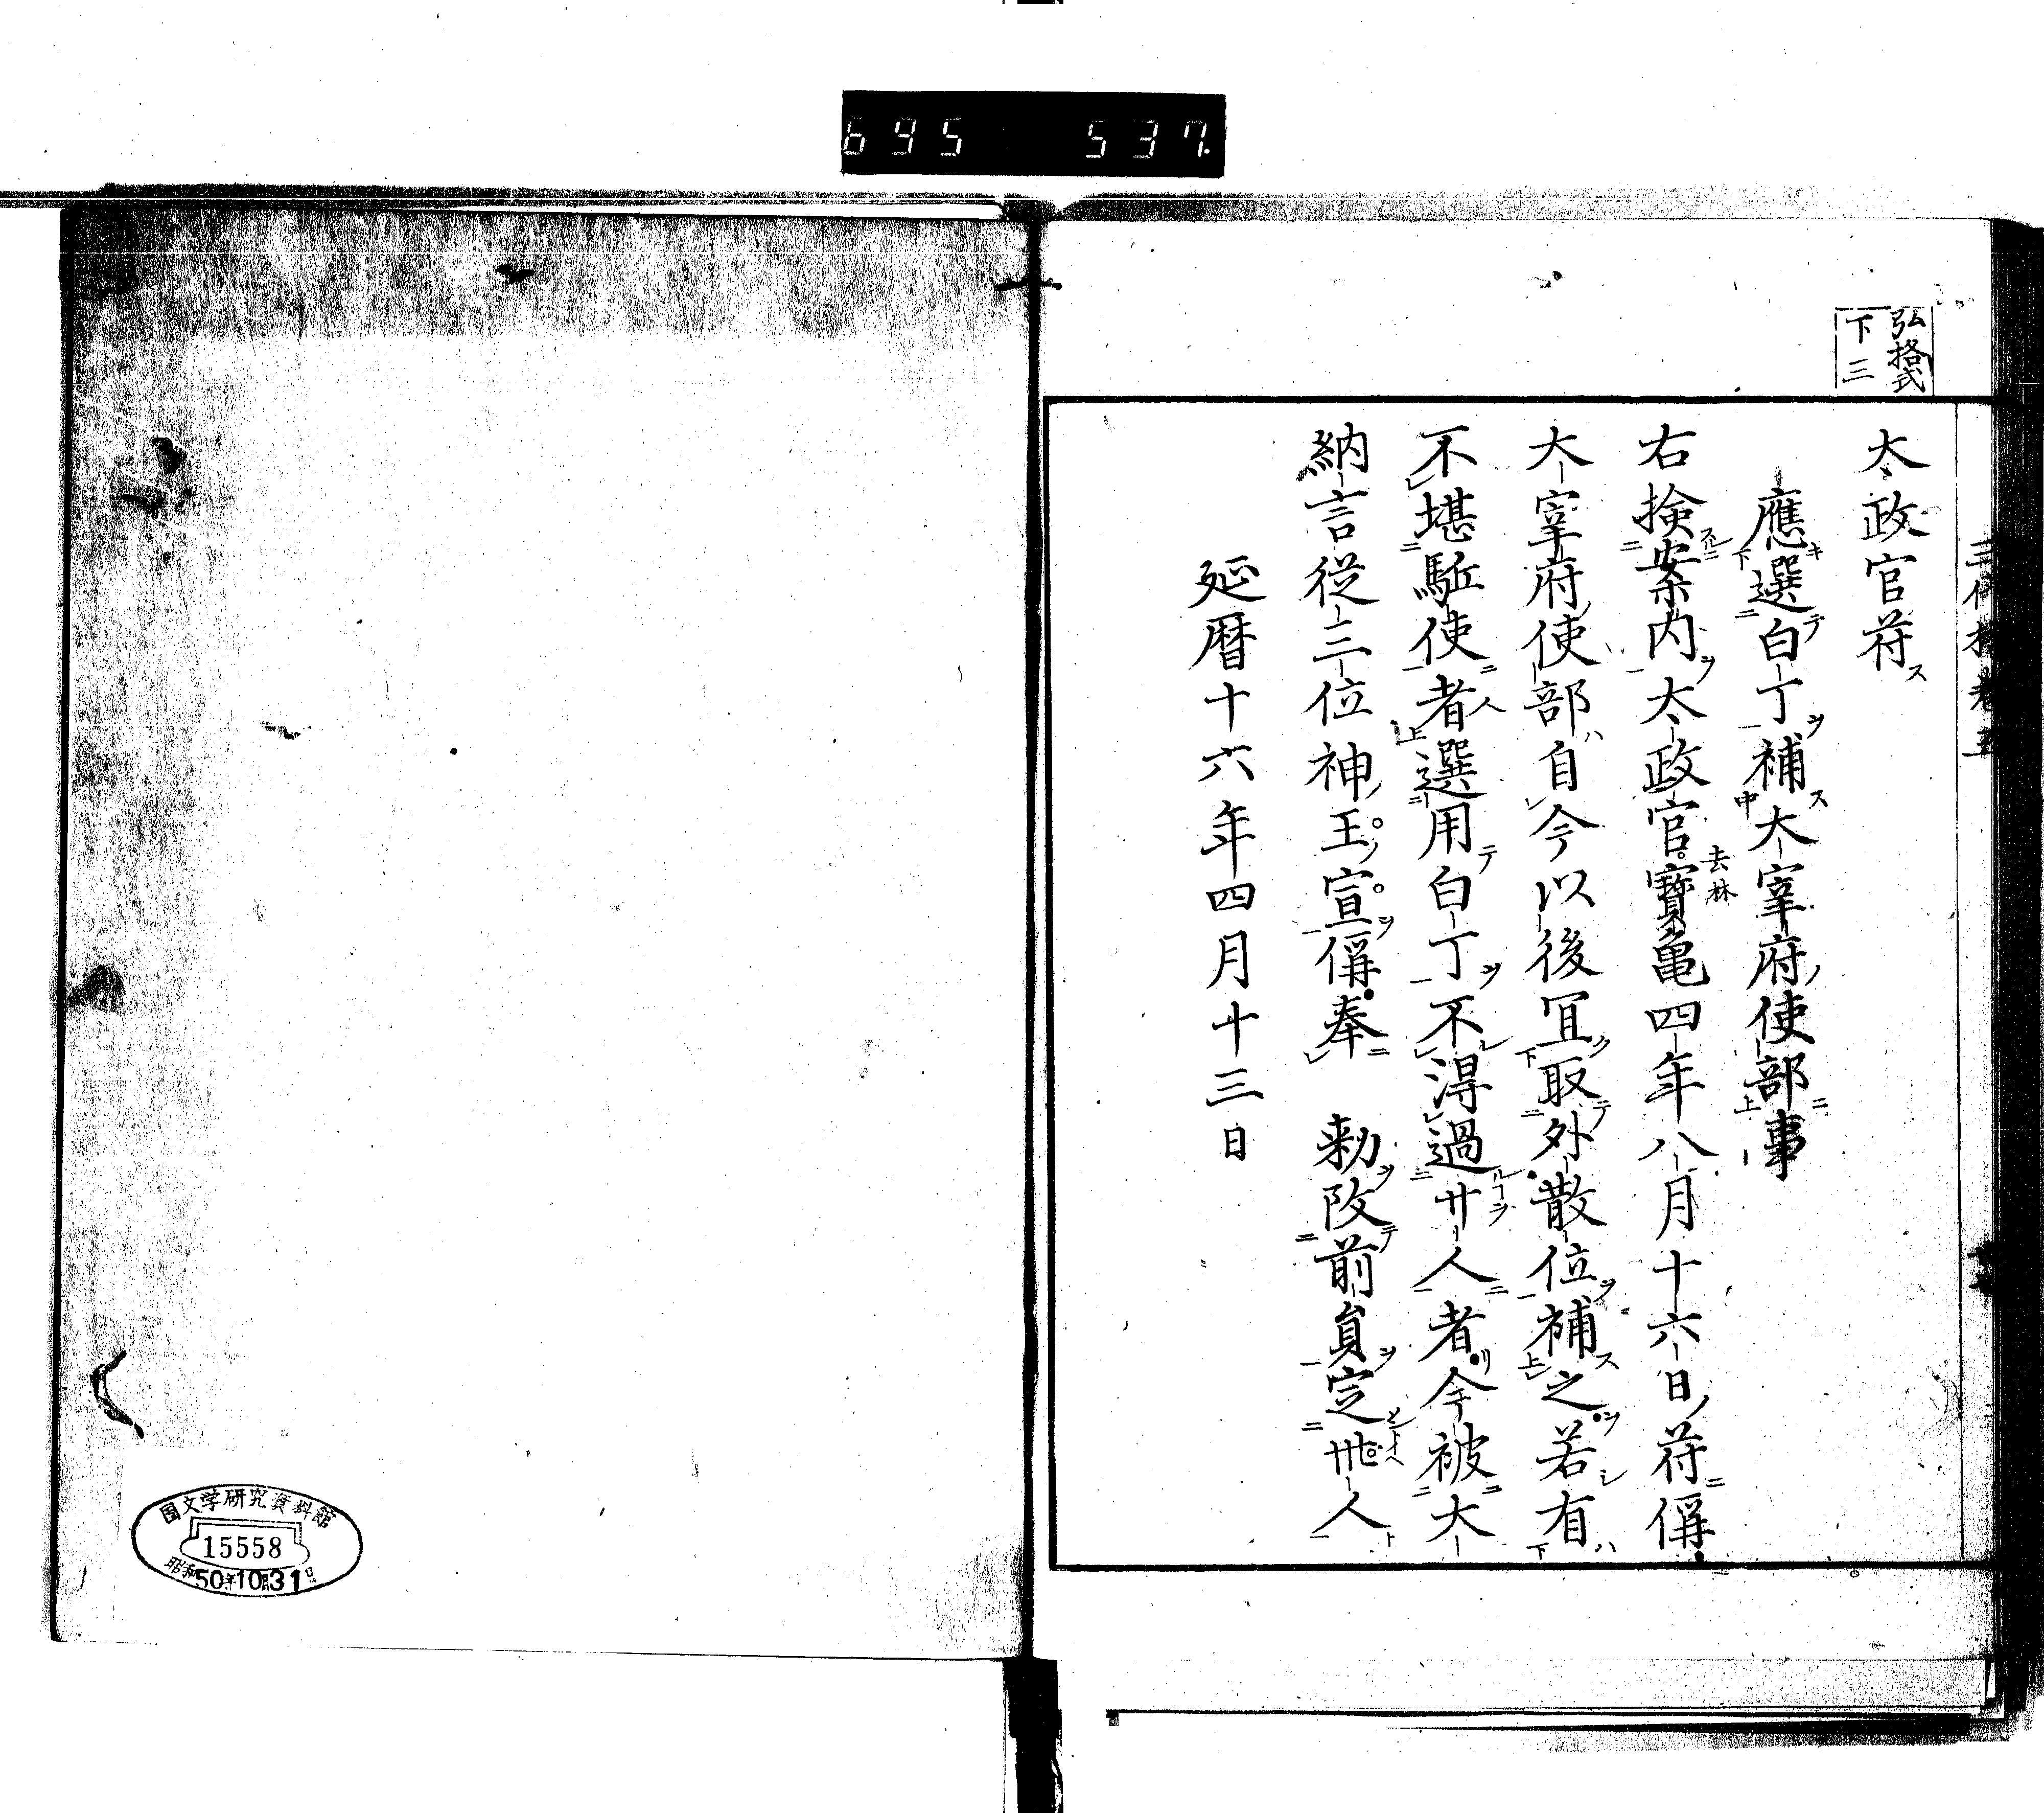 695 537.
弘格式
下三
太政官符
應選白丁補太宰府使部事
右撿案内太政官寶亀四年八月十六日符偁
大宰府使部自今以後冝取外散位補之若有
不堪駈使者選用白丁不得過廿人者今被大
納言從三位神王宣偁奉　勅改前員定卌人
延暦十六年四月十三日
国文学研究資料館
15558
昭和50年10月31日